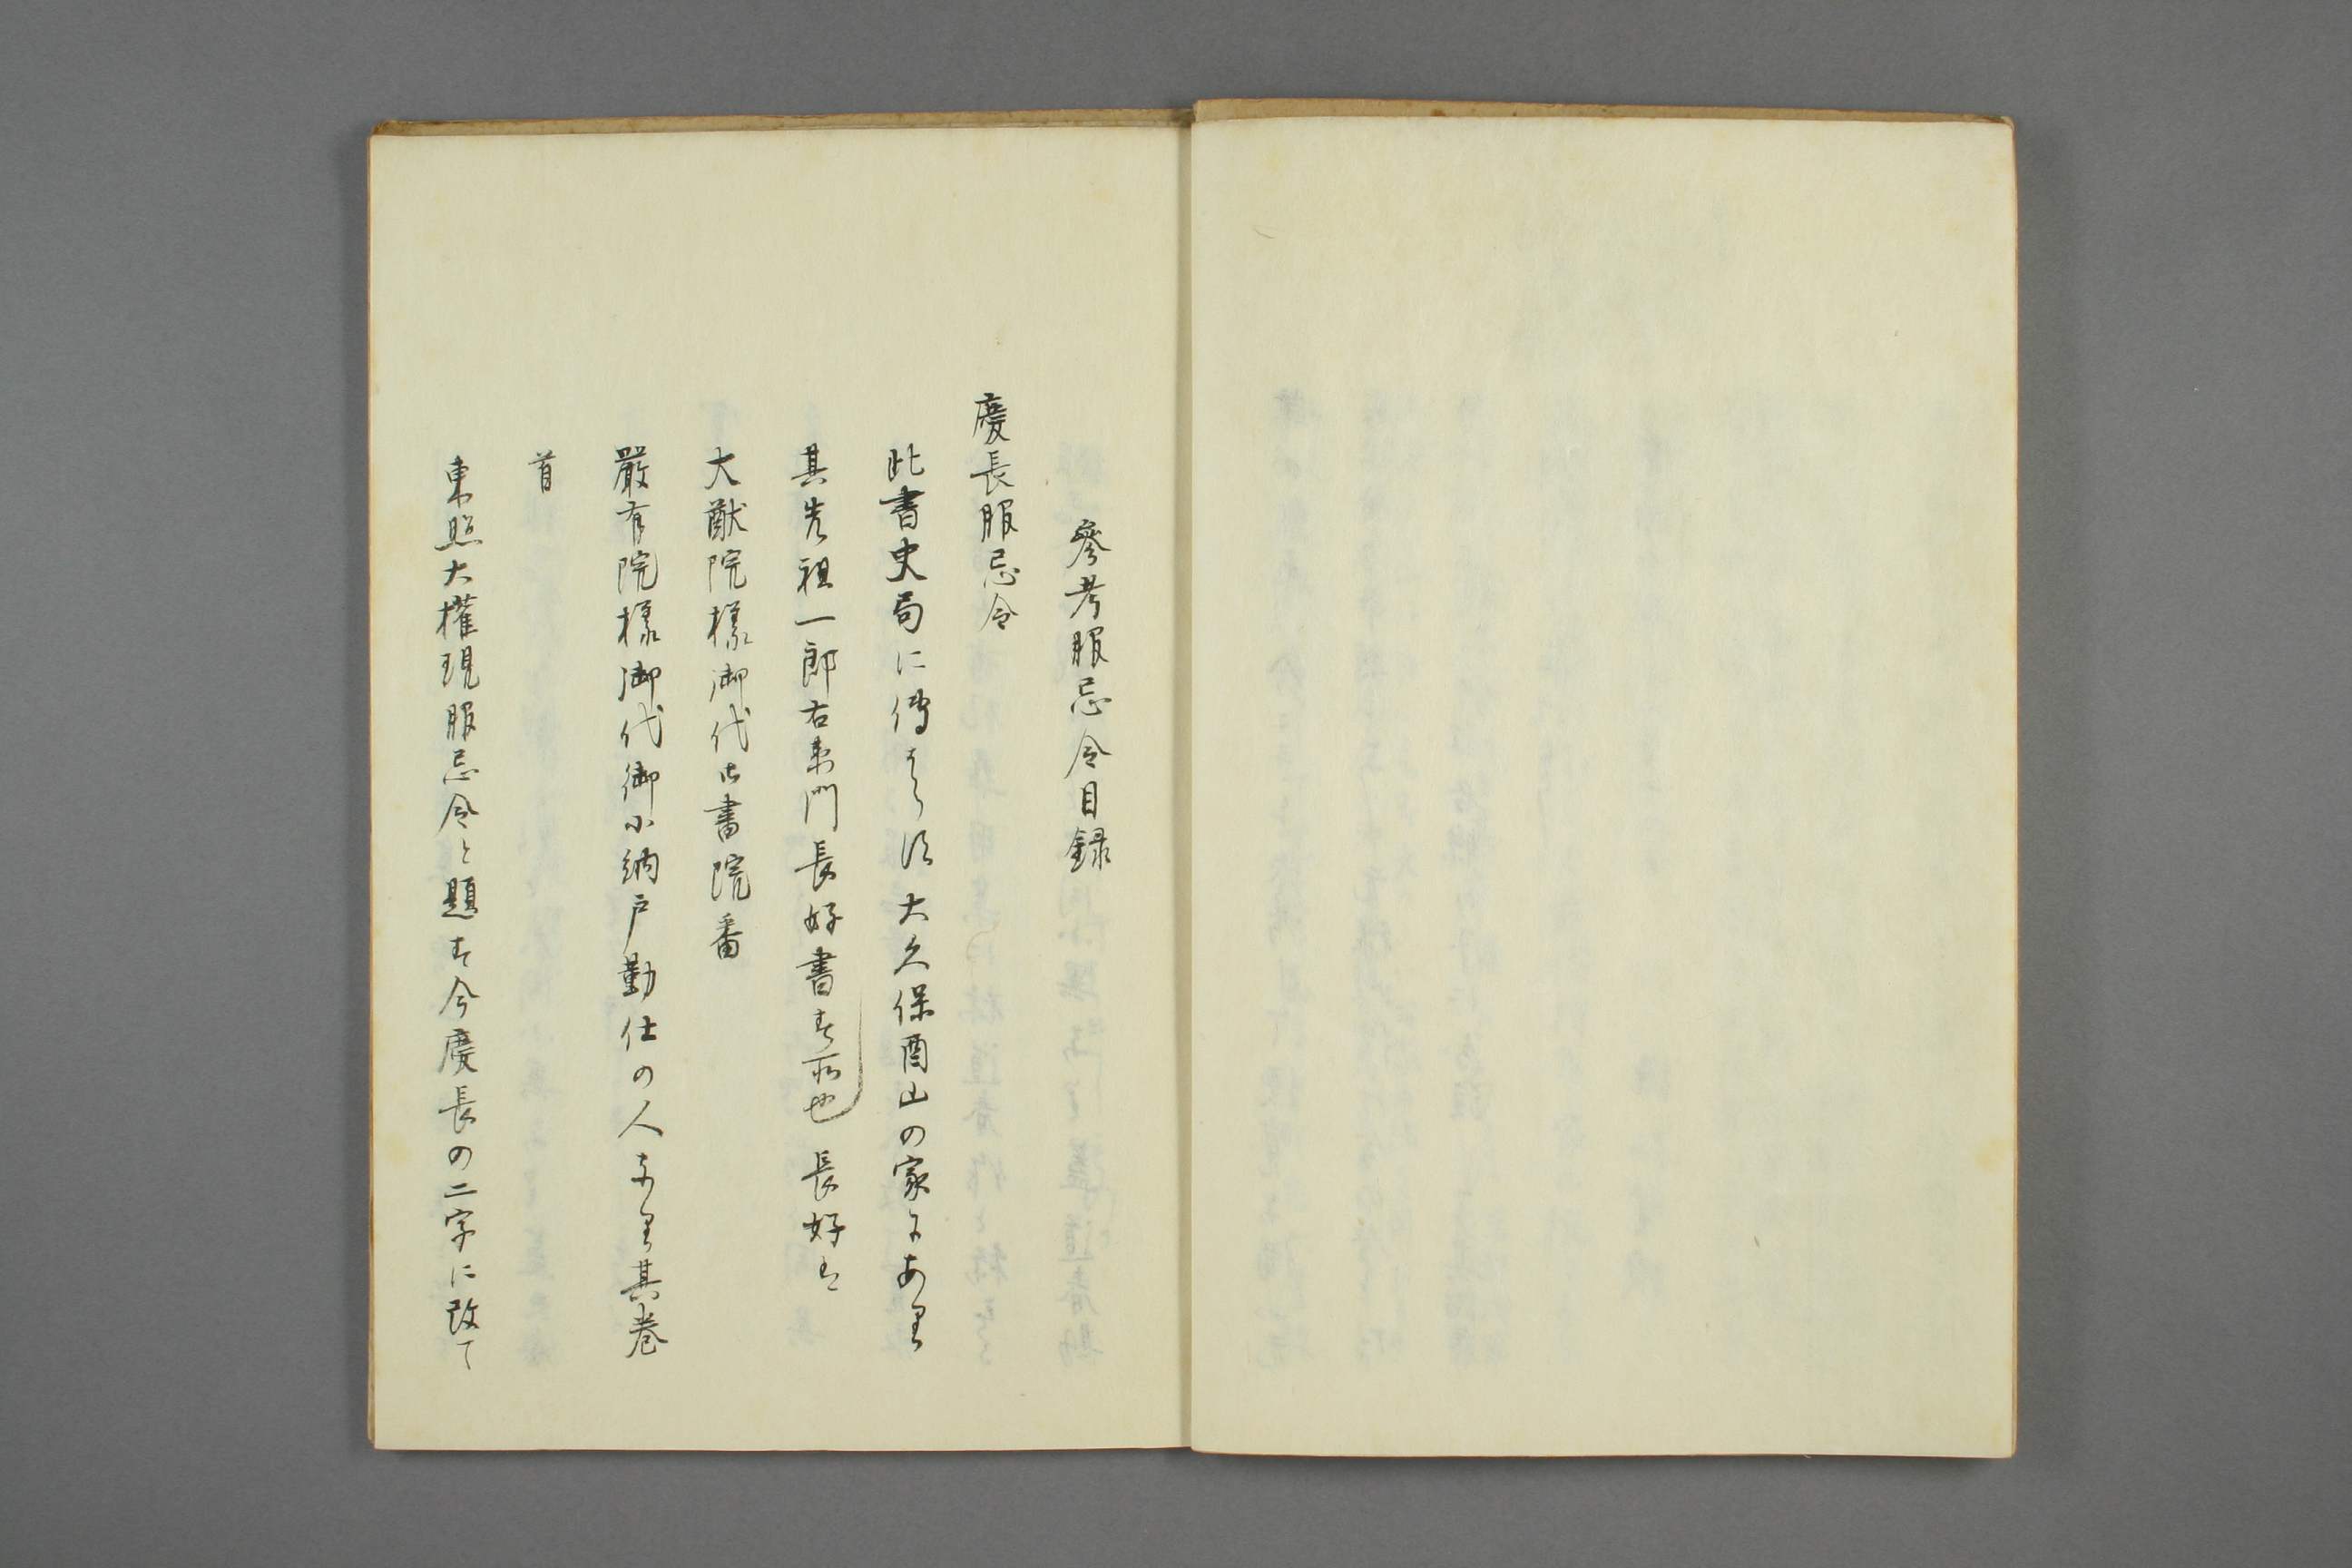 參考服忌令目録
慶長服忌令
此書史局に傳はらす大久保酉山の家にあり
其先祖一郎右衛門長好書す所也長好は
大猷院樣御代御書院番
嚴有院樣御代御小納戸勤仕の人なり其巻
首
東照大權現服忌令と題す今慶長の二字に改て